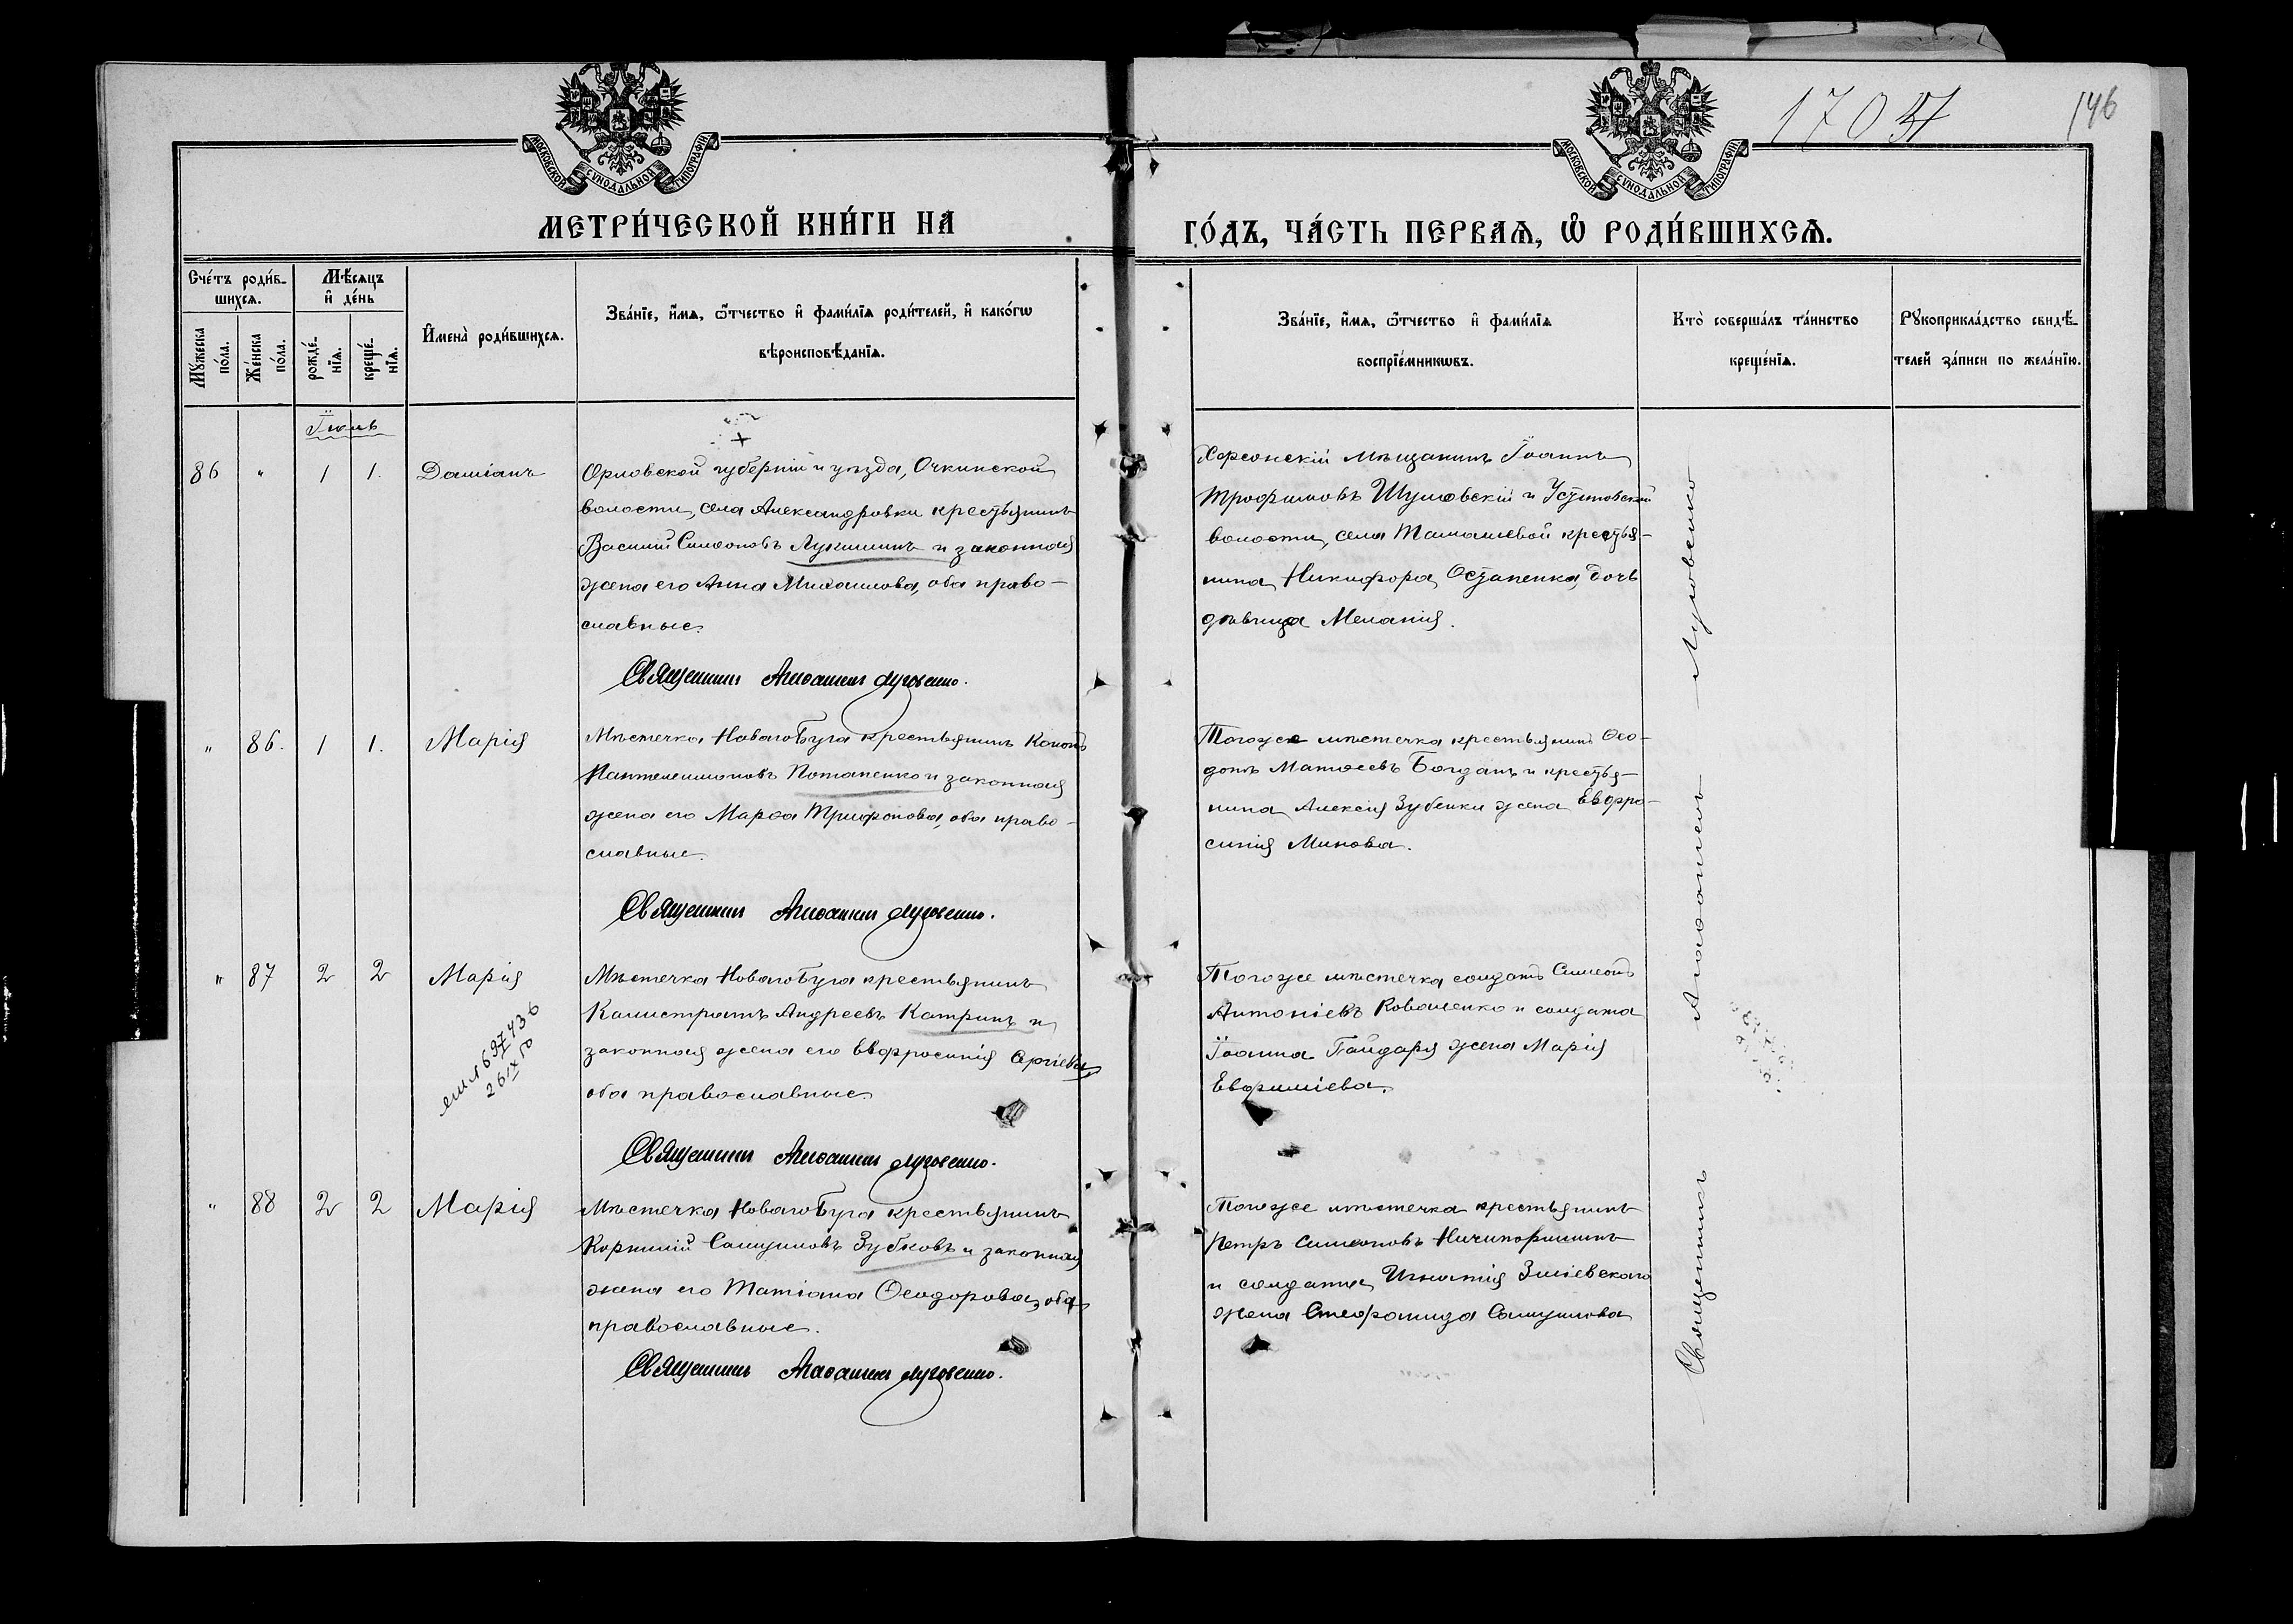 1704
146
МОСКОВСКОЙ СѴНОДАЛЬНОЙ ТИПОГРАФІИ
МОСКОВСКОЙ СѴНОДАЛЬНОЙ ТИПОГРАФІИ
МЕТРИ́ЧЕСКОЙ КНИ́ГИ НА
ГО́ДЪ, ЧА́СТЬ ПЕРВАѦ, Ѡ҆ РОДИ́ВШИХСѦ.
Сче́тъ роди́в-
шихсѧ.
Мѣсѧцъ
и҆ де́нь
Мꙋжеска
по́ла.
Же́нска
по́ла.
рожде́-
нїѧ.
креще́-
нїѧ.
И҆мена̀ роди́вшихсѧ.
Зва́нїе, и҆́мѧ, ѻ҆́тчество и҆ фами́лїѧ роди́телей, и҆ како́гѡ
вѣроисповѣ́данїѧ.
Зва́нїе, и҆́мѧ, ѻ҆́тчество и҆ фами́лїѧ
воспрїе́мникѡвъ.
Кто̀ соверша́лъ та́инство
креще́нїѧ.
Рꙋкоприкла́дство свидѣ́-
телей за́писи по жела́нїю.
Іюль
86 " 1 1. Даміанъ
Орловской губерніи и уѣзда, Очкинской
волости, села Александровки крестьянинъ
Василій Симеоновъ Лукшинъ и законная
жена его Анна Михаилова, оба право-
славные.
Священникъ Агаѳангелъ Луговенко.
Херсонскій мѣщанинъ Іоаннъ
Трофимовъ Шумовскій и Устиновской
волости, села Тамашевой крестья-
нина Никифора Остапенка, дочь
дѣвица Меланія.
" 86. 1 1. Марія
Мѣстечка Новаго Буга крестьянинъ Кононъ
Пантелеимоновъ Потапенко и законная
жена его Марѳа Трифонова, оба право-
славные.
Священникъ Агаѳангелъ Луговенко.
Того же мѣстечка крестьянинъ Ѳео-
дотъ Матѳеевъ Богданъ и крестья-
нина Алексія Зубенки жена Евфро-
синія Минова.
" 87 2 2 Марія
697436
26 IX 50
Мѣстечка Новаго Буга крестьянинъ
Калистратъ Андреевъ Катринъ и
законная жена его Евфросинія Сергіева,
оба православные
Священникъ Агаѳангелъ Луговенко.
Того же мѣстечка солдатъ Симеонъ
Антоніевъ Коваленко и солдата
Іоанна Гайдаря жена Марія
Евфиміева.
" 88 2 2 Марія
Мѣстечка Новаго Буга крестьянинъ
Корнилій Самуиловъ Зубковъ и законная
жена его Татіана Ѳеодорова, оба
православные.
Священникъ Агаѳангелъ Луговенко.
Того же мѣстечка крестьянинъ
Петръ Симеоновъ Ничипоришинъ
и солдата Игнатія Зміевскаго
жена Стефанида Самуилова
Священникъ Агаѳангелъ Луговенко